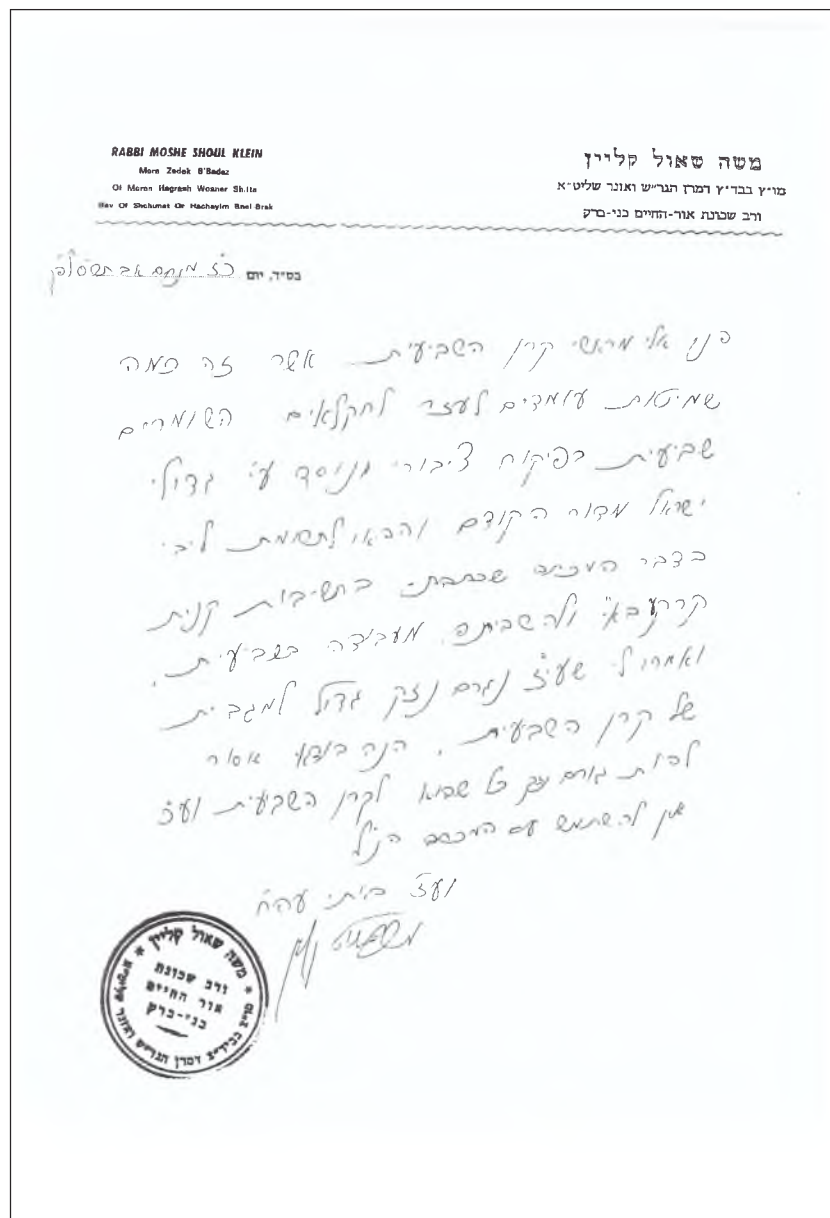 RABBI MOSHE SHOUL KLEIN
More Zedek B'Badaz
Of Maran Hagrash Wosner Sh.lta
Rav Of Shchunat Or Hachayim Bnei Brak
משה שאול קליין
מו״ץ בבד״ץ דמרן הגר״ש ואזנר שליט״א
ורב שכונת אור-החיים בני-ברק
בס״ד, יום כ״ז מנחם אב
פנו אלי מראשי קרן השביעית אשר זה כמה
שמיטות עומדים לעזר לחקלאים השומרים
שביעית בפיקוח ציבורי מנוסד ע״י גדולי
ישראל מדור הקודם והביאו לתשומת ליבי
בדבר המכתב שכתבתי בחשיבות קנית
קרקע בא״י ולהשביתה מעבודה בשביעית,
ואמרו לי שעי״ז נגרם נזק גדול למגבית
של קרן השביעית, הנה בודאי אסור
לגרום נזק כל שהוא לקרן השביעית ועי״ז
אין להשתמש עם המכתב הנ״ל
ועז״ב עה״ח
משה שאול קליין
משה שאול קליין
מו״צ בביד״צ דמרן הגר״ש ואזנר
ורב שכונת
אור החיים
בני-ברק